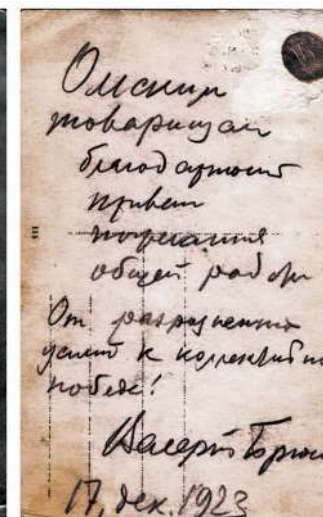 Омским
товарищам
благодарность
привет
пожелания
общей работы
От разрозненных
усилий к коллективн
победе!
Валерий Брюсо
17, дек. 1923